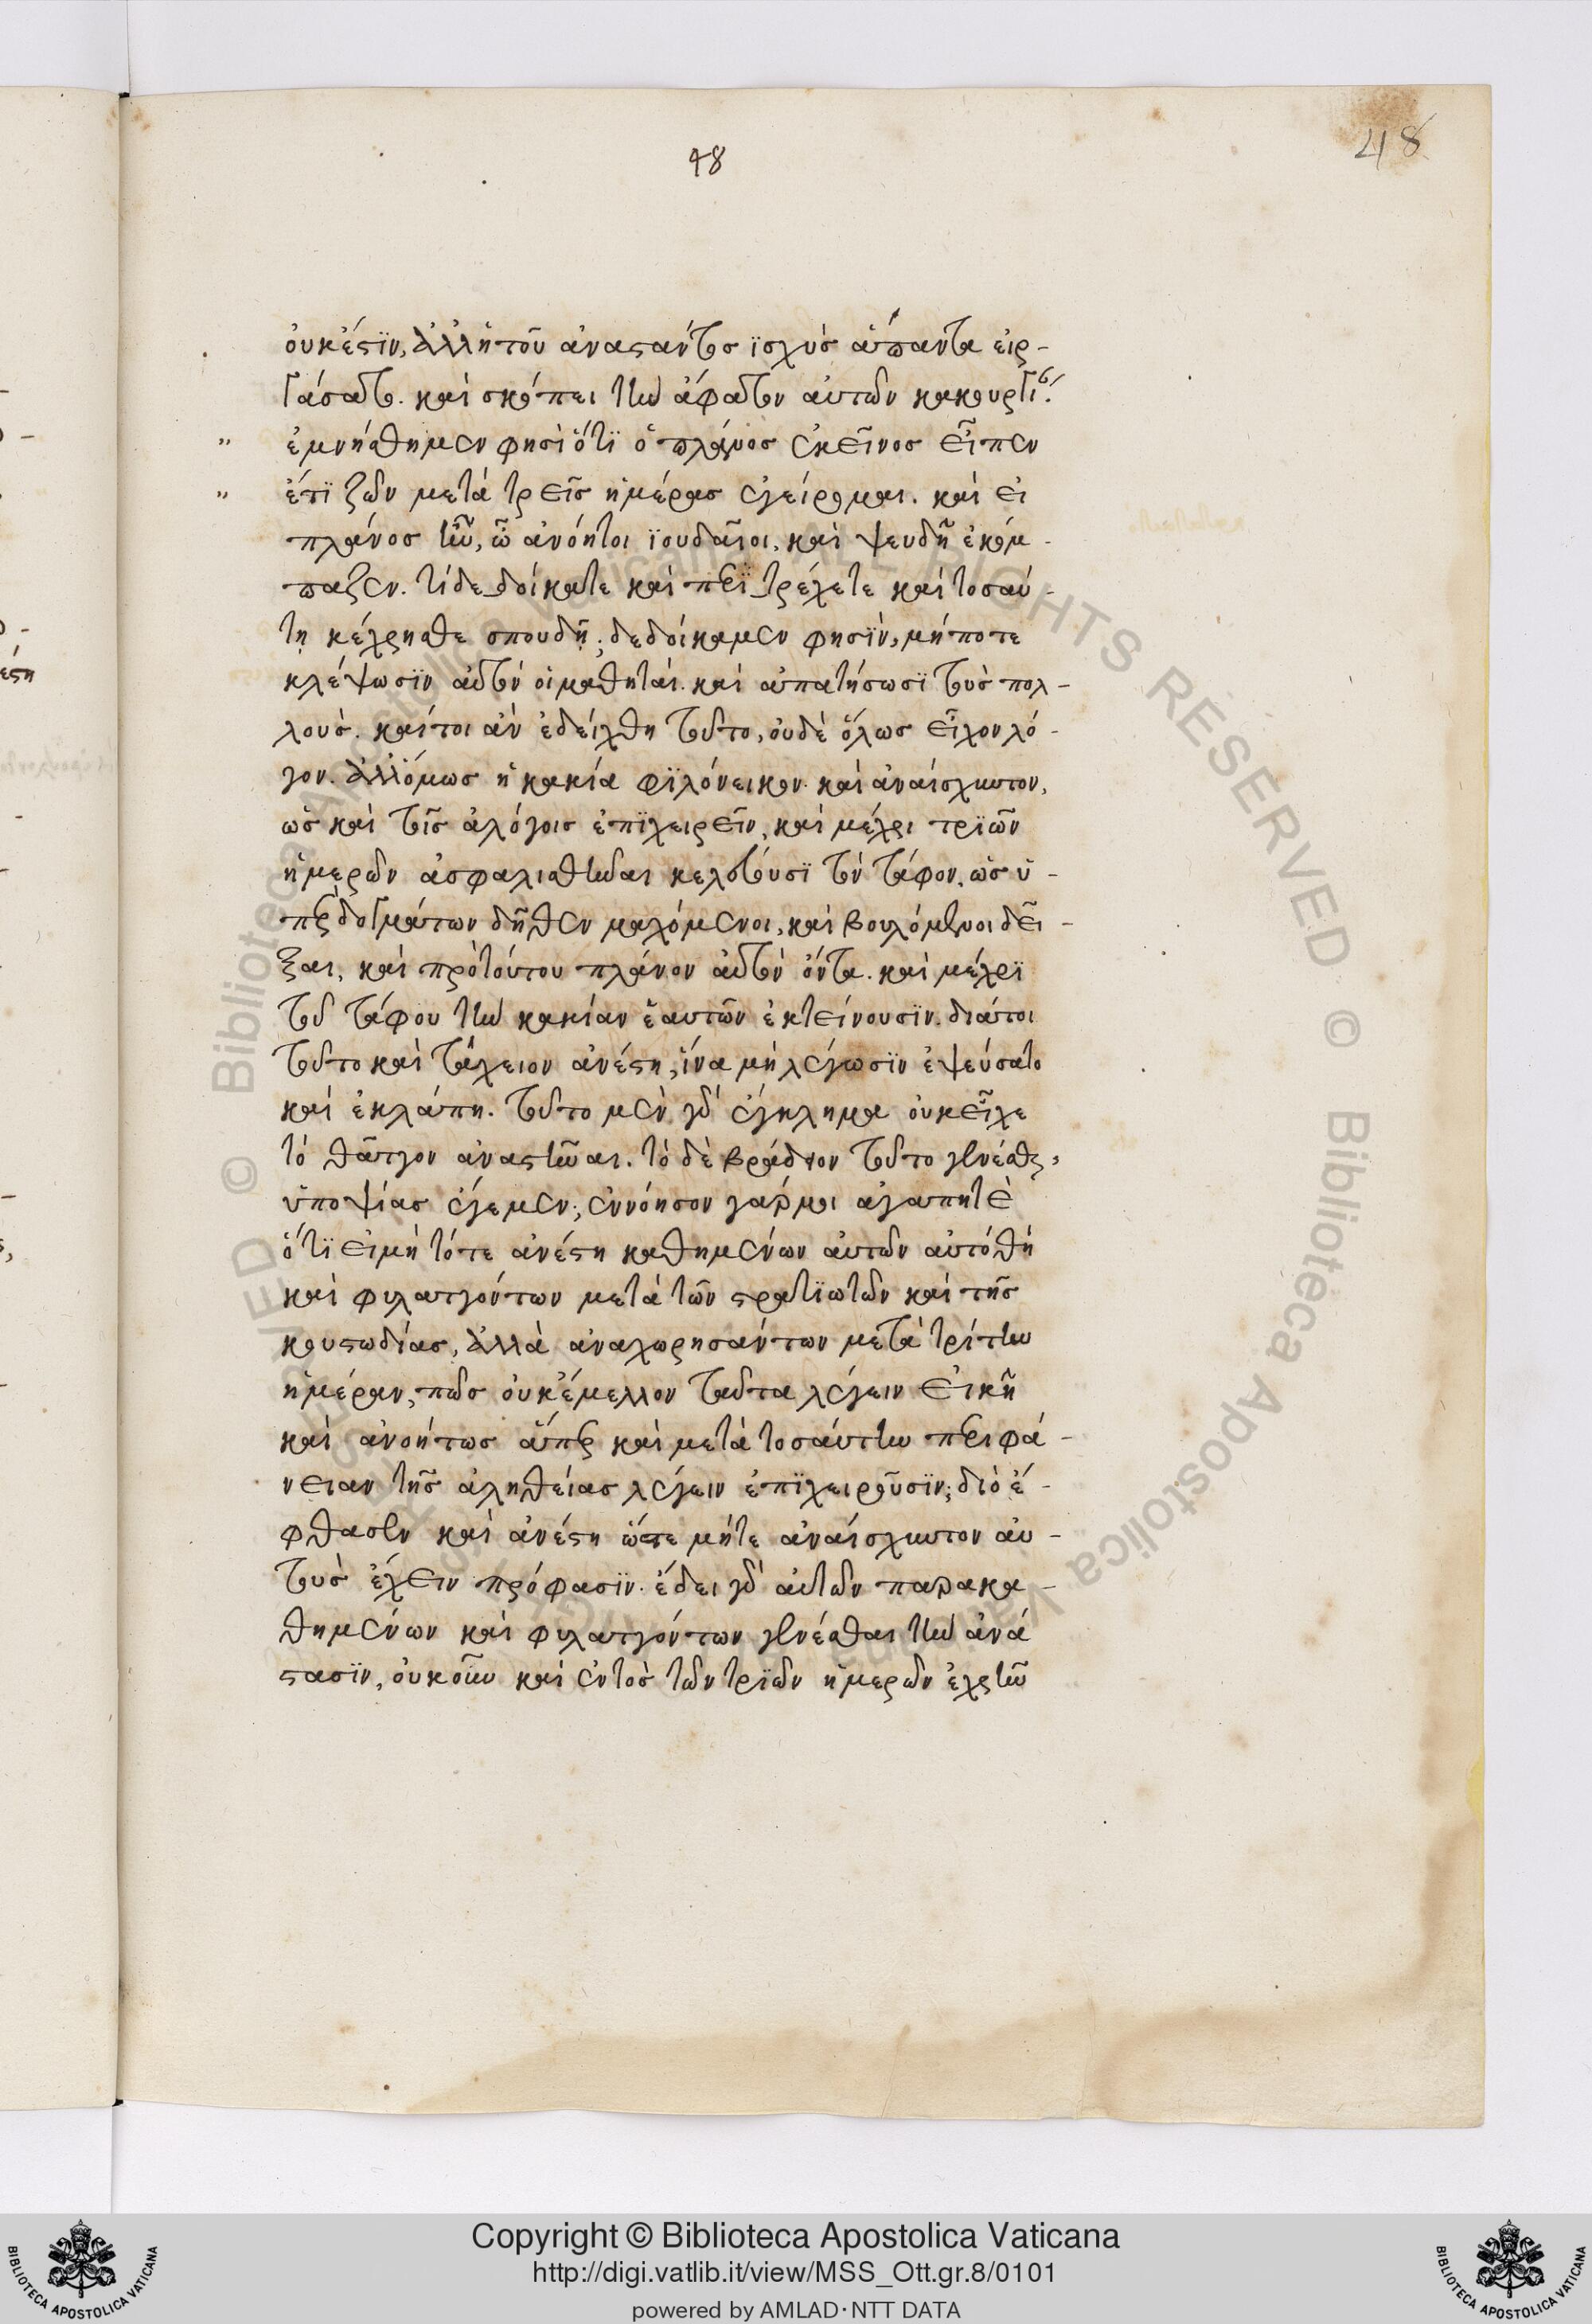 48
48
οὐκ ἔστιν, ἀλλ' ἡ τοῦ ἀναστάντος ἰσχὺς ἅπαντα εἰρ-
γάσατο. καὶ σκόπει τὴν ἄφατον αὐτῶν κακουργί(αν).
" ἐμνήσθημεν φησὶ ὅτι ὁ πλάνος ἐκεῖνος εἶπεν
" ἔτι ζῶν μετὰ τρεῖς ἡμέρας ἐγείρομαι. καὶ εἰ
πλάνος ἦν, ὦ ἀνόητοι ἰουδαῖοι, καὶ ψευδῆ ἐκόμ-
παζεν. τί δεδοίκατε καὶ περιτρέχετε καὶ τοσαύ-
τῃ κέχρησθε σπουδῇ; δεδοίκαμεν φησὶν, μήποτε
κλέψωσιν αὐτὸν οἱ μαθηταί. καὶ ἀπατήσωσι τοὺς πολ-
λούς. καίτοι ἂν ἐδείχθη τοῦτο, οὐδὲ ὅλως εἶχον λό-
γον. ἀλλ' ὅμως ἡ κακία φιλόνεικον καὶ ἀναίσχυντον,
ὡς καὶ τοῖς ἀλόγοις ἐπιχειρεῖν, καὶ μέχρι τριῶν
ἡμερῶν ἀσφαλισθῆναι κελεύουσι τὸν τάφον, ὡς ὑ-
πὲρ δογμάτων δῆθεν μαχόμενοι, καὶ βουλόμενοι δεῖ-
ξαι, καὶ πρὸ τούτου πλάνον αὐτὸν ὄντα. καὶ μέχρι
τοῦ τάφου τὴν κακίαν ἑαυτῶν ἐκτείνουσιν. διάτοι
τοῦτο καὶ τάχειον ἀνέστη, ἵνα μὴ λέγωσιν ἐψεύσατο
καὶ ἐκλάπη. τοῦτο μὲν γὰρ ἔγκλημα οὐκ εἶχε
τὸ θᾶττον ἀναστῆναι. τὸ δὲ βράδιον τοῦτο γενέσθαι,
ὑποψίας ἔγεμεν; ἐννόησον γάρ μοι ἀγαπητὲ
ὅτι εἰ μὴ τότε ἀνέστη καθημένων αὐτῶν αὐτόθι
καὶ φυλαττόντων μετὰ τῶν στρατιωτῶν καὶ τῆς
κουστωδίας, ἀλλὰ ἀναχωρησάντων μετὰ τρίτην
ἡμέραν, πῶς οὐκ ἔμελλον ταῦτα λέγειν εἰκῆ
καὶ ἀνοήτως ἅπερ καὶ μετὰ τοσαύτην περιφά-
νειαν τῆς ἀληθείας λέγειν ἐπιχειροῦσιν; διὸ ἔ-
φθασεν καὶ ἀνέστη ὥστε μήτε ἀναίσχυντον αὐ-
τοὺς ἔχειν πρόφασιν. ἔδει γὰρ αὐτῶν παρακα-
θημένων καὶ φυλαττόντων γενέσθαι τὴν ἀνά
στασιν, οὐκοῦν καὶ ἐντὸς τῶν τριῶν ἡμερῶν ἐχρῆν
Copyright © Biblioteca Apostolica Vaticana
http://digi.vatlib.it/view/MSS_Ott.gr.8/0101
powered by AMLAD·NTT DATA